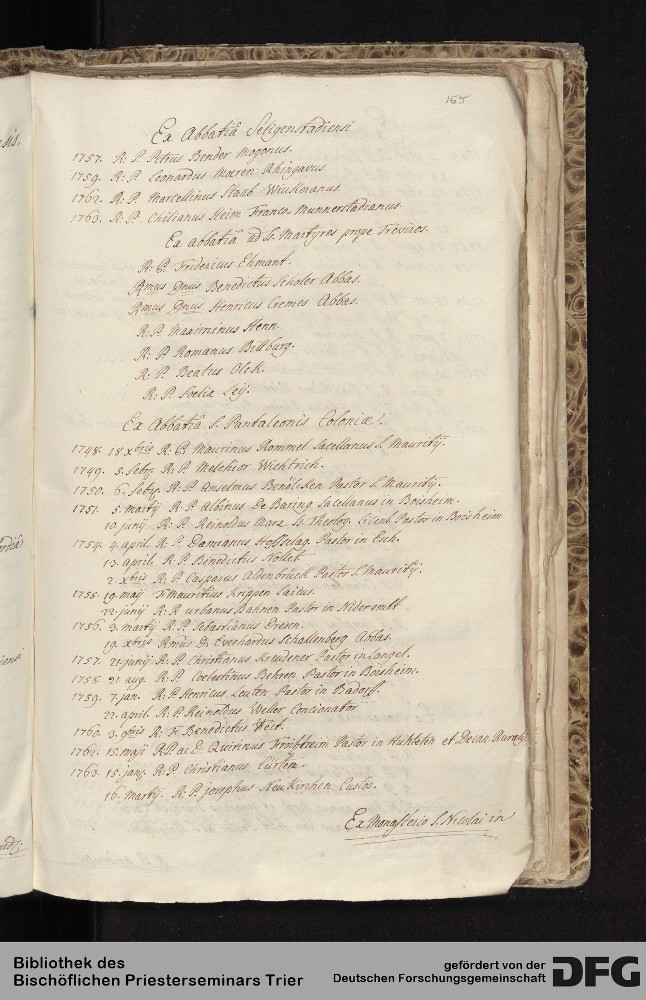 165
Ex Abbatiâ Seligenstadiensi
1757. R. P. Petrus Bender Mogonus.
1759. R. P. Leonardus Moeren Rhingavus.
1762. R. P. Marcellinus Staab
1763. R. P. Chilianus Heim Franco-Munnerstadianus.
Ex abbatiâ ad SS. Martyres prope Treviros.
R. P. Fridericus Ehmant.
Rmus Dnus Benedictus Scholer Abbas.
Rmus Dnus Henricus Cremes Abbas.
R. P. Maximinus Henn.
R. P. Romanus Bittburg.
R. P. Beatus Olck.
R. P. Felix Leÿ.
Ex Abbatiâ S. Pantaleonis Coloniæ.
1748. 18 Xbris R. P. Maurinus Rommel Sacellanus S. Mauritÿ.
1749. 5. febr. R. P. Melchior Wichtrich.
1750. 6. febr. R. P. Anselmus Pastor S. Mauritÿ.
1751. 5. martÿ R. P. Albinus De Baring Sacellanus in Boisheim.
10 junÿ R. P. Reinoldus Marx SS. Theolog. Licent. Pastor in Boisheim
1754. 4. april. R. P. Damianus Holtselag. Pastor in Esch.
13. april. R. P. Benedictus Nollet
2. Xbris R. P. Casparus Aldenbrück Pastor S. Mauritÿ.
1755. 19. maÿ F. Mauritius Krippen Laicus.
22. junÿ R. P. urbanus Bahnen Pastor in Niderembt
1756. 3. martÿ R. P. Sebastianus Dresen.
19. Xbris Rmus D. Everhardus Schallenberg Abbas.
1757. 21. junÿ R. P. Christianus Kreudener Pastor in Langel.
1758. 21. aug. R. P. Coelestinus Behren Pastor in Boisheim.
1759. 7. jan. R. P. Henricus Leuten Pastor in Badorf.
22. april. R. P. Reinoldus Weller Concionator
1760. 3. 9bris R. F. Benedictus Veit.
1762. 15. maÿ R. P. ac D. Quirinus Pastor in et Decan. Rural.
1763. 15. jan. R. P. Christianus Cürten.
16. martÿ. R. P. josephus Neukirchen Custos.
Ex Monasterio S. Nicolai in
Bibliothek des
Bischöflichen Priesterseminars Trier
gefördert von der
Deutschen Forschungsgemeinschaft
DFG